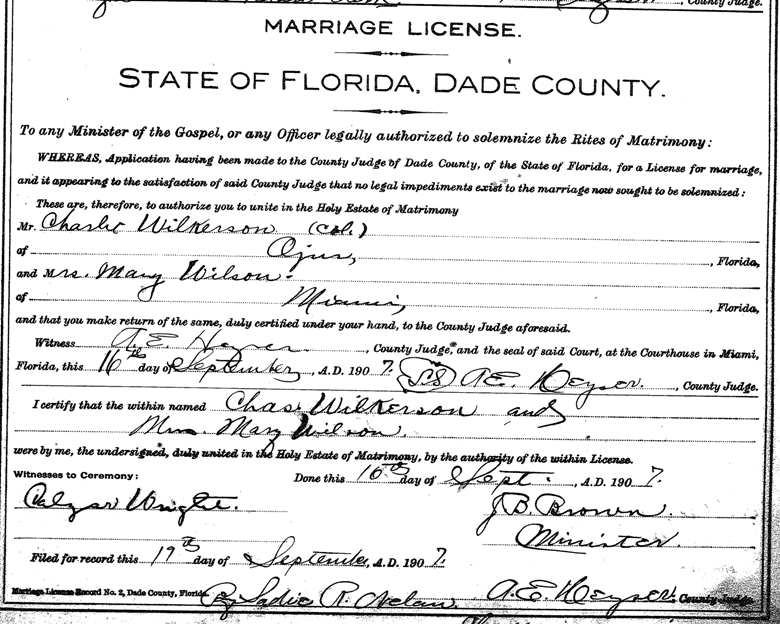 , County Judge.
MARRIAGE LICENSE.
STATE OF FLORIDA, DADE COUNTY.
To any Minister of the Gospel, or any Officer legally authorized to solemnize the Rites of Matrimony:
WHEREAS, Application having been made to the County Judge of Dade County, of the State of Florida, for a License for marriage,
and it appearing to the satisfaction of said County Judge that no legal impediments exist to the marriage now sought to be solemnized:
These are, therefore, to authorize you to unite in the Holy Estate of Matrimony
Mr. Charlie Wilkerson (Col.)
of Ojus, , Florida,
and Mrs. Mary Wilson.
of Miami, , Florida,
and that you make return of the same, duly certified under your hand, to the County Judge aforesaid.
Witness A. E. Heyser , County Judge, and the seal of said Court, at the Courthouse in Miami,
Florida, this 16th day of September , A.D. 190 7. A. E. Heyser. , County Judge.
I certify that the within named Chas. Wilkerson and
Mrs. Mary Wilson.
were by me, the undersigned, duly united in the Holy Estate of Matrimony, by the authority of the within License.
Witnesses to Ceremony: Done this 16th day of Sept. , A.D. 190 7.
Wright. J. B. Brown
Minister.
Filed for record this 19th day of September, A.D. 190 7.
Marriage License Record No. 2, Dade County, Florida. By Sadie R. A. E. Heyser, County Judge.